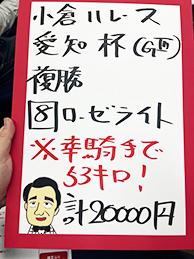 小倉11レース
愛知杯(GⅢ)
複勝
8 ローゼライト
※幸騎手で
53キロ！
計20000円